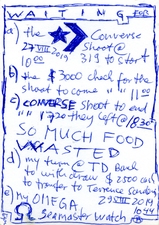 WAITING FOR
a) the Converse
27 VIII 2019 Shoot @
10:00 319 to start
b) the $3000 check for the
shoot to come " " 11:00
c) CONVERSE shoot to end
" " 1320 they left @ 18:30
SO MUCH FOOD
WASTED
d) my turn @ TD Bank
to withdraw $2500 cash
to transfer to Terrence
29 VIII 2019
e) My OMEGA 10:44
Seamaster Watch